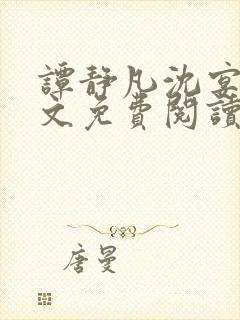 譚靜凡沈宴
文免費閱讀
唐曼